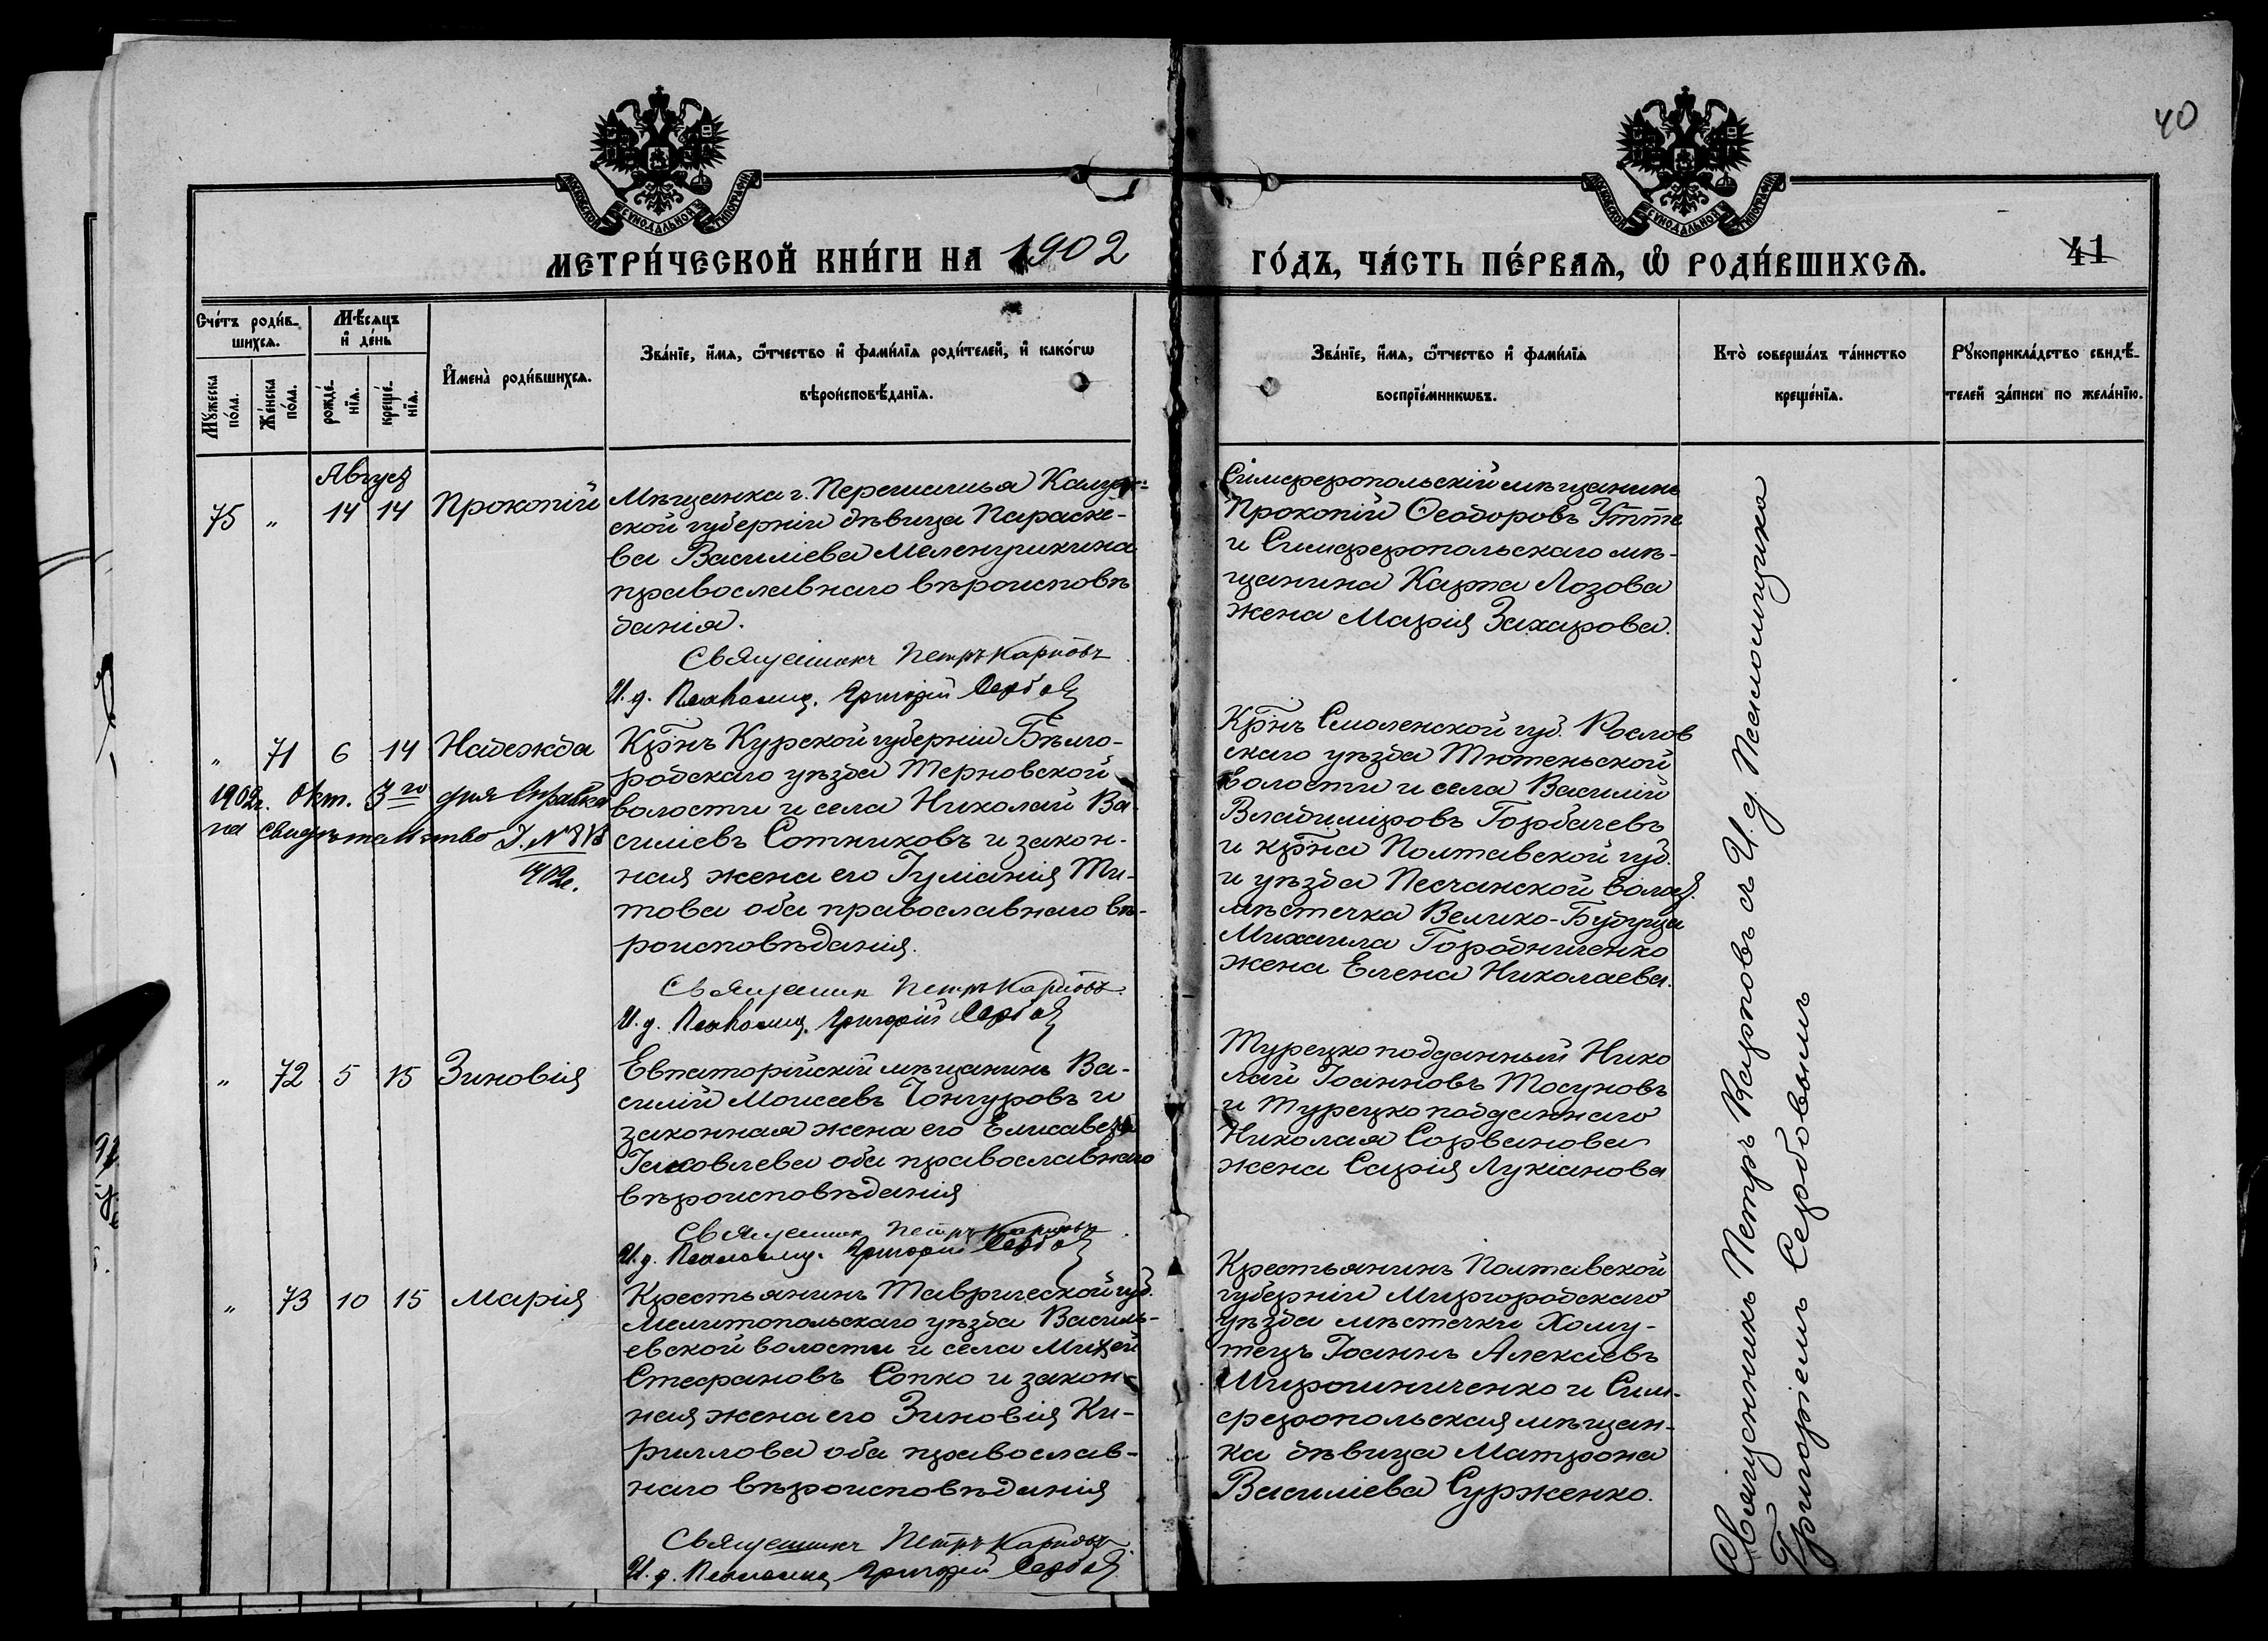 40
МОСКОВСКОЙ СѴНОДАЛЬНОЙ ТИПОГРАФІИ
МОСКОВСКОЙ СѴНОДАЛЬНОЙ ТИПОГРАФІИ
МЕТРИ́ЧЕСКОЙ КНИ́ГИ НА 1902
ГО́ДЪ, ЧА́СТЬ ПЕ́РВАѦ, Ѽ РОДИ́ВШИХСѦ.
41
Счéтъ роди́в-
шихсѧ.
Мꙋ́жеска
по́ла.
Же́нска
по́ла.
Мѣ́сѧцъ
и҆ де́нь
рожде́-
нїѧ.
креще́-
нїѧ.
И҆мена̀ роди́вшихсѧ.
Зва́нїе, и҆́мѧ, ѻ҆́тчество и҆ фами́лїѧ роди́телей, и҆ како́гѡ
вѣроисповѣ́данїѧ.
Зва́нїе, и҆́мѧ, ѻ҆́тчество и҆ фами́лїѧ
воспрїе́мникѡвъ.
Кто̀ соверша́лъ та́инство
креще́нїѧ.
Рꙋкоприкла́дство свидѣ́-
телей за́писи по жела́нїю.
Август
75 „ 14 14 Прокопій
Мѣщанка г. Перемышля Калуж-
ской губерніи дѣвица Параске-
ва Василіева Меленушкина
православнаго вѣроисповѣ
данія.
Священникъ Петръ Карповъ
И. д. Псаломщ. Григорій Сербов
Симферопольскій мѣщанинъ
Прокопій Ѳеодоровъ Утте
и Симферопольскаго мѣ-
щанина Карпа Лозова
жена Марія Захарова.
„ 71 6 14 Надежда
1902г. Окт. 3го дня Справка
на свидѣтельство
1902г.
Крнъ Курской губерніи Бѣлго-
родскаго уѣзда Терновской
волости и села Николай Ва-
силіевъ Сотниковъ и закон-
ная жена его Іуліанія Ти-
това оба православнаго вѣ-
роисповѣданія.
Священник Петръ Карповъ.
И. д. Псаломщ. Григорій Сербов
Крнъ Смоленской губ. Рослов
скаго уѣзда Тютеньской
волости и села Василій
Владиміровъ Горбачевъ
и крна Полтавской губ.
и уѣзда Песчанской волост.
мѣстечка Велико-Будуща
Михаила Городниченко
жена Елена Николаева.
„ 72 5 15 Зиновія
Евпаторійскій мѣщанинъ Ва-
силій Моисеевъ Чонгуровъ и
законная жена его Елисавета
Іаковлева оба православнаго
вѣроисповѣданія
Священник Петръ Карповъ.
И. д. Псаломщ. Григорій Сербов
Турецко подданный Нико
лай Іоанновъ Тосуновъ
и Турецко подданнаго
Николая Сорванова
жена Сарія Лукіанова
„ 73 10 15 Марія
Крестьянинъ Таврической губ.
Мелитопольскаго уѣзда Василь-
евской волости и села Михей
Стефановъ Сопко и закон-
ная жена его Зиновія Ки-
риллова оба православ-
наго вѣроисповѣданія
Священникъ Петръ Карповъ.
И. д. Псаломщ Григорій Сербов
Крестьянинъ Полтавской
губерніи Миргородскаго
уѣзда мѣстечки Хому-
тецъ Іоаннъ Алексіевъ
Мирошниченко и Сим-
феропольская мѣщан-
ка дѣвица Матрона
Василіева Сурженко.
Священникъ Петръ Карповъ съ И. д. Псаломщика
Григоріемъ Сербовымъ